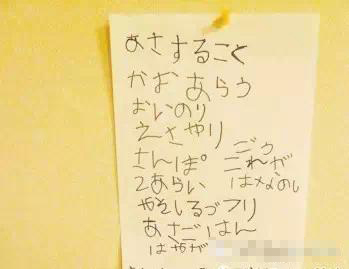 あさすること
かおあらう
おいのり
えさやり
さんぽ
2あらい
やさしるづフリ
あさごはん
はやが
ごう
これが
はなのし